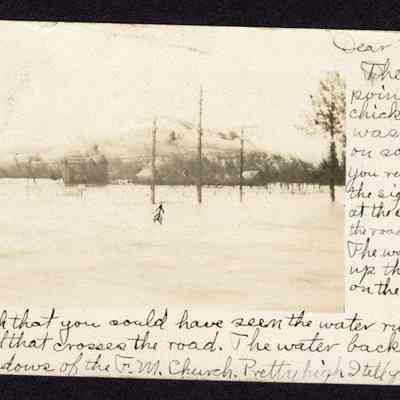 Dear
The
poin
chick
was
on so
you re
the sig
at the
the road
The wa
up th
on the
h that you could have seen the water ru
l that crosses the road. The water back
dows of the F.M. Church. Pretty high I tell y